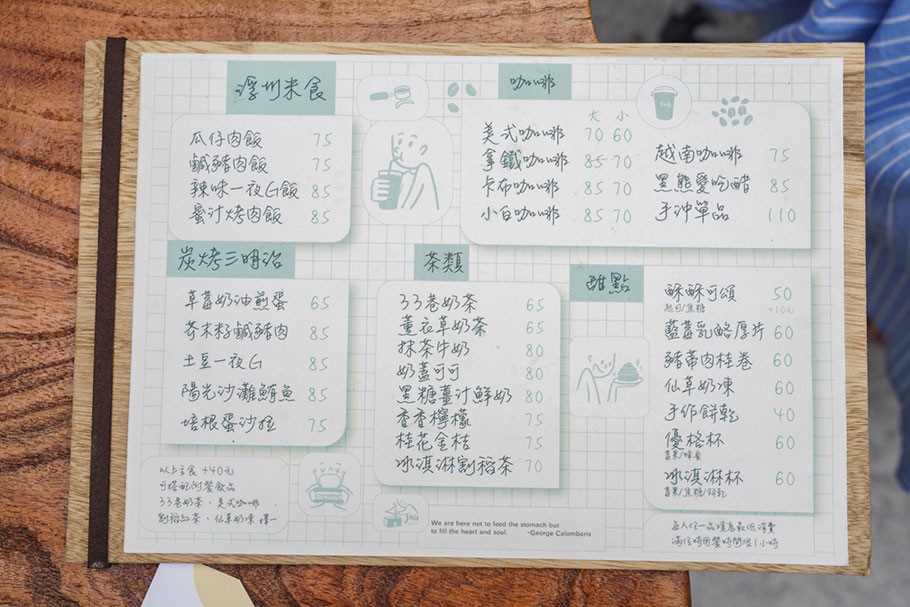 浮州米食
瓜仔肉飯 75
鹹豬肉飯 75
辣味一夜G飯 85
蜜汁烤肉飯 85
咖啡
大 小
美式咖啡 70 60
拿鐵咖啡 85 70
卡布咖啡 85 70
小白咖啡 85 70
越南咖啡 75
黑熊愛吃醋 85
手沖單品 110
炭烤三明治
草莓奶油煎蛋 65
芥末籽鹹豬肉 85
土豆一夜G 85
陽光沙灘鮪魚 85
培根蛋沙拉 75
茶類
33巷奶茶 65
薰衣草奶茶 65
抹茶牛奶 80
奶蓋可可 80
黑糖薑汁鮮奶 80
香香檸檬 75
桂花金桔 75
冰淇淋割稻茶 70
甜點
酥酥可頌 50
起司/焦糖 +10元
藍莓乳酪厚片 60
豬蒂肉桂卷 60
仙草奶凍 60
手作餅乾 40
優格杯 60
冰淇淋杯 60
以上主食 +40元
可搭配附餐飲品
33巷奶茶、美式咖啡
割稻紅茶、仙草奶凍 擇一
We are here not to feed the stomach but
to fill the heart and soul. -George Calombaris
每人任一品項為最低消費
滿位時用餐時間限1小時